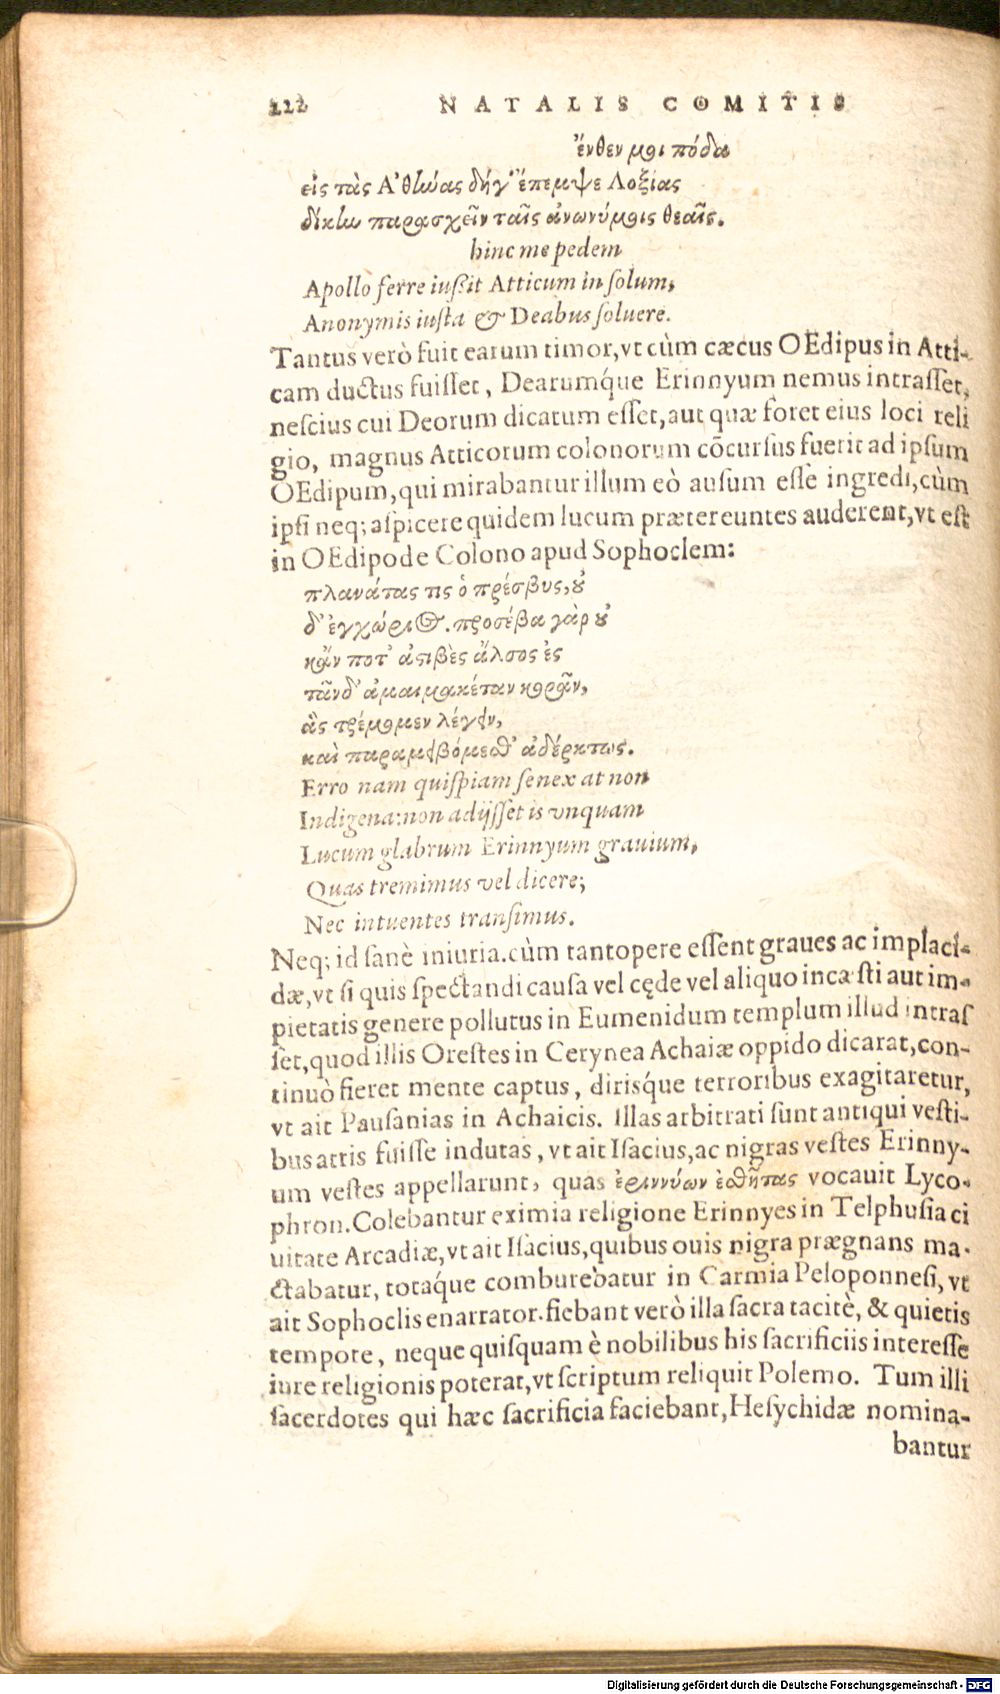 222 NATALIS COMITIS
ἔνθεν μοι πόδα
εἰς τὰς ἈθLώας δήγ' ἔπεμψε Λοξίας
δίκlω παρασχεῖν ταῖς ἀνωνύμοις θεαῖς.
hinc me pedem
Apollo ferre iußit Atticum in solum,
Anonymis iusta & Deabus soluere.
Tantus verò fuit earum timor, vt cùm cæcus OEdipus in Atti-
cam ductus fuisset, Dearumq́ue Erinnyum nemus intrasset,
nescius cui Deorum dicatum esset, aut quæ foret eius loci reli
gio, magnus Atticorum colonorum cōcursus fuerit ad ipsum
OEdipum, qui mirabantur illum eò ausum esse ingredi, cùm
ipsi neq; aspicere quidem lucum prætereuntes auderent, vt est
in OEdipode Colono apud Sophoclem:
πλανάτας τις ὁ πρέσβυς, ȣ̓
δ' ἐγχώριΘ. προσέβα γὰρ ȣ̓
κἄν ποτ' ἀστιβὲς ἄλσος ἐς
τᾶνδ' ἀμαιμακέταν κορᾶν,
ἃς τρέμομεν λέγειν,
καὶ παραμειβόμεσθ' ἀδέρκτως.
Erro nam quispiam senex at non
Indigena: non adijsset is vnquam
Lucum glabrum Erinnyum grauium,
Quas tremimus vel dicere;
Nec intuentes transimus.
Neq; id sanè iniuria. cùm tantopere essent graues ac implaci-
dæ, vt si quis spectandi causa vel cęde vel aliquo incæsti aut im-
pietatis genere pollutus in Eumenidum templum illud intras
set, quod illis Orestes in Cerynea Achaiæ oppido dicarat, con-
tinuò fieret mente captus, dirisq́ue terroribus exagitaretur,
vt ait Pausanias in Achaicis. Illas arbitrati sunt antiqui vesti-
bus atris fuisse indutas, vt ait Isacius, ac nigras vestes Erinny-
um vestes appellarunt, quas ἐριννύων ἐσθῆτας vocauit Lyco-
phron. Colebantur eximia religione Erinnyes in Telphusia ci
uitate Arcadiæ, vt ait Isacius, quibus ouis nigra prægnans ma-
ctabatur, totaq́ue comburebatur in Carmia Peloponnesi, vt
ait Sophoclis enarrator. fiebant verò illa sacra tacitè, & quietis
tempore, neque quisquam è nobilibus his sacrificiis interesse
iure religionis poterat, vt scriptum reliquit Polemo. Tum illi
sacerdotes qui hæc sacrificia faciebant, Hesychidæ nomina-
bantur
Digitalisierung gefördert durch die Deutsche Forschungsgemeinschaft - DFG